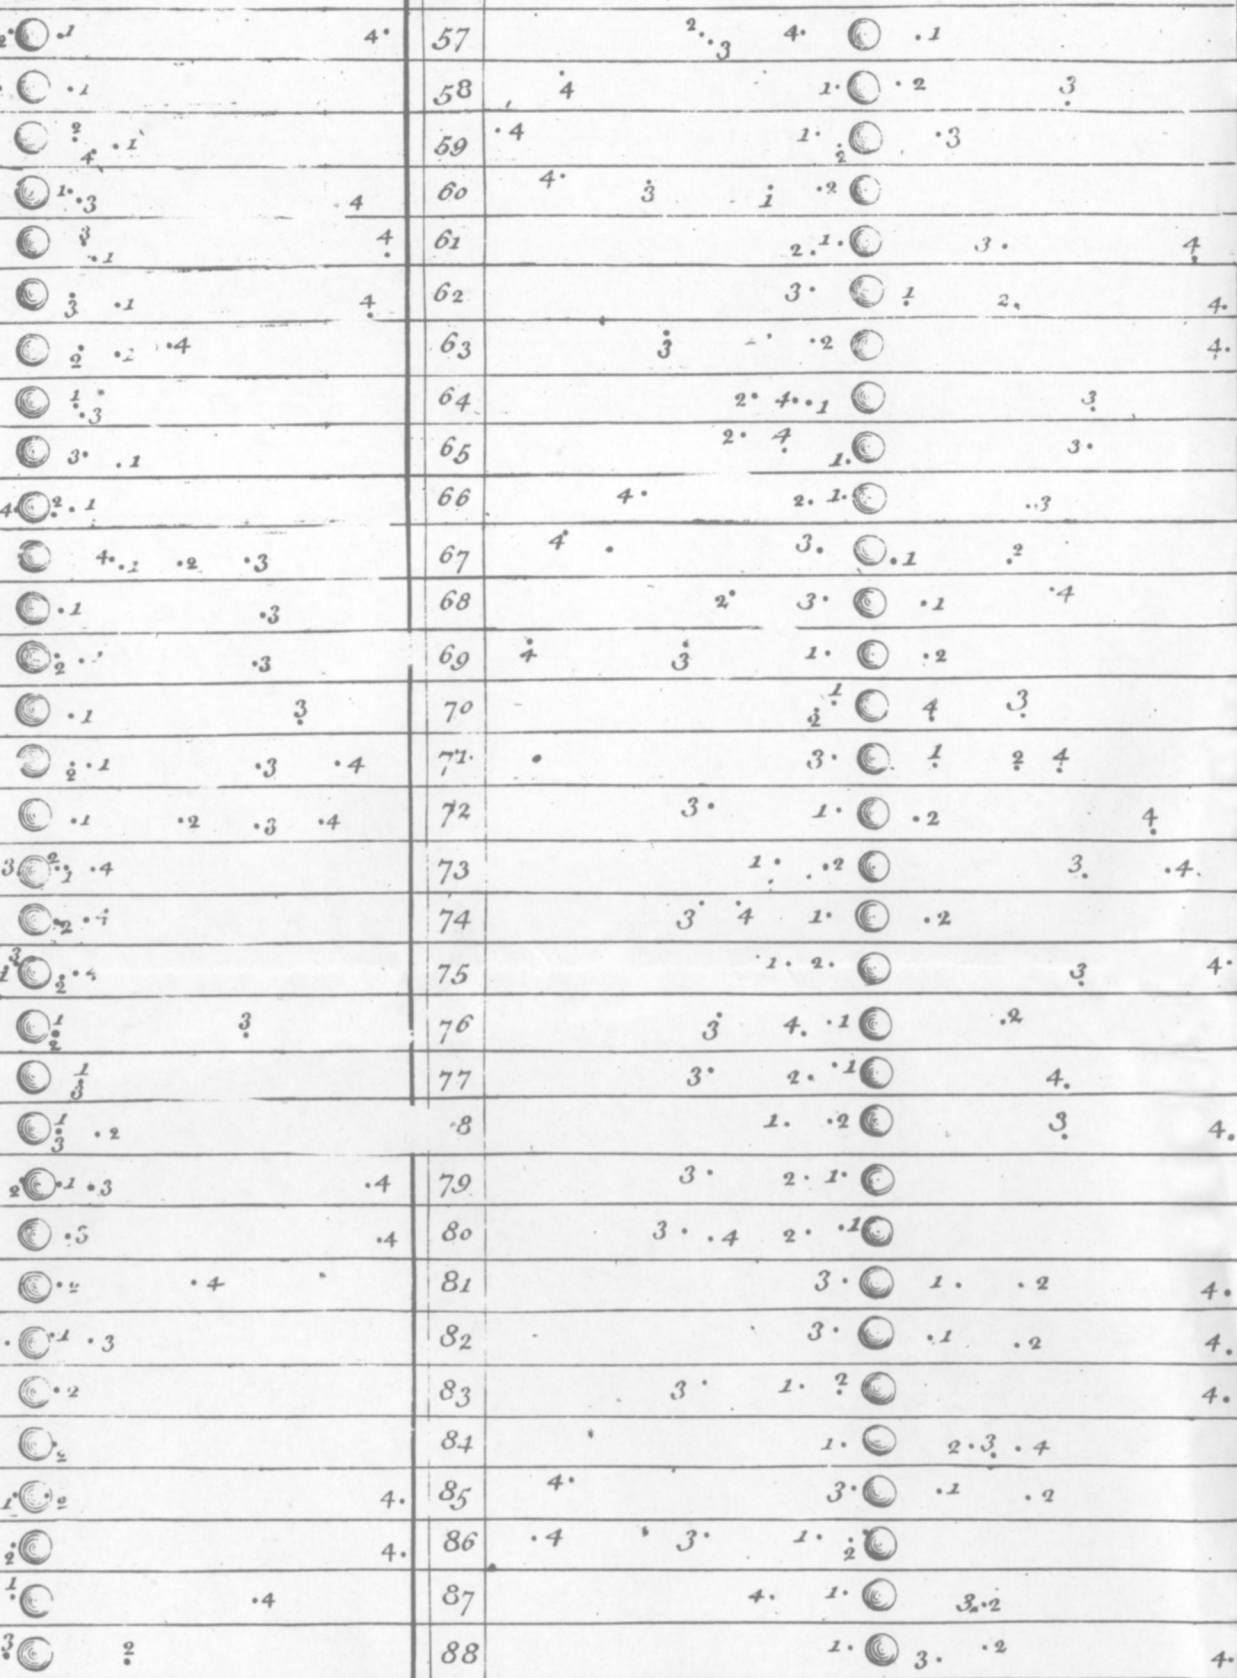 2 1 4 57 2 3 4 1
1 58 4 1 2 3
2 4 1 59 4 1 2 3
1 3 4 60 4 3 1 2
3 1 4 61 2 1 3 4
3 1 4 62 3 1 2 4
2 1 4 63 3 2 4
1 3 64 2 4 1 3
3 1 65 2 4 1 3
4 2 1 66 4 2 1 3
4 1 2 3 67 4 3 1 2
1 3 68 2 3 1 4
2 1 3 69 4 3 1 2
1 3 70 2 1 4 3
2 1 3 4 71 3 1 2 4
1 2 3 4 72 3 1 2 4
3 2 1 4 73 1 2 3 4
2 4 74 3 4 1 2
1 3 2 4 75 1 2 3 4
1 2 3 76 3 4 1 2
1 3 77 3 2 1 4
1 3 2 8 1 2 3 4
2 1 3 4 79 3 2 1
3 4 80 3 4 2 1
2 4 81 3 1 2 4
1 3 82 3 1 2 4
2 83 3 1 2 4
2 84 1 2 3 4
1 2 4 85 4 3 1 2
2 4 86 4 3 1 2
1 4 87 4 1 3 2
3 2 88 1 3 2 4